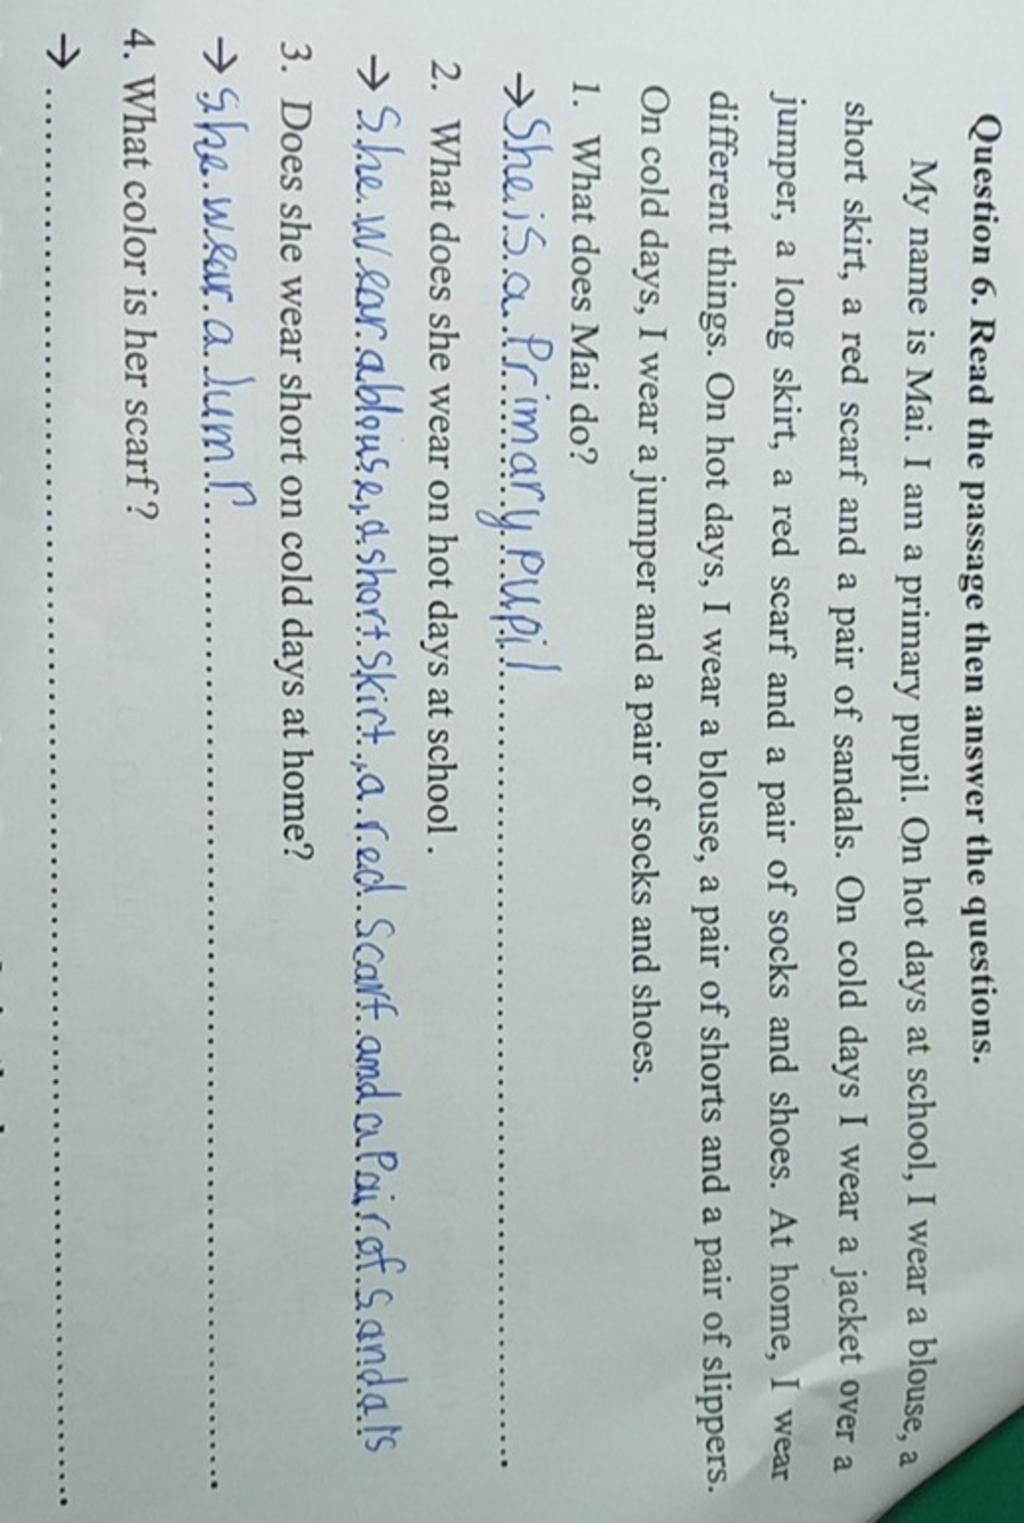 Question 6. Read the passage then answer the questions.
My name is Mai. I am a primary pupil. On hot days at school, I wear a blouse, a
short skirt, a red scarf and a pair of sandals. On cold days I wear a jacket over a
jumper, a long skirt, a red scarf and a pair of socks and shoes. At home, I wear
different things. On hot days, I wear a blouse, a pair of shorts and a pair of slippers.
On cold days, I wear a jumper and a pair of socks and shoes.
1. What does Mai do?
→ She is a Primary pupil
2. What does she wear on hot days at school .
→ She wear a blouse, a short skirt, a red scarf and a Pair of sandals
3. Does she wear short on cold days at home?
→ she wear a Jum P
4. What color is her scarf?
→